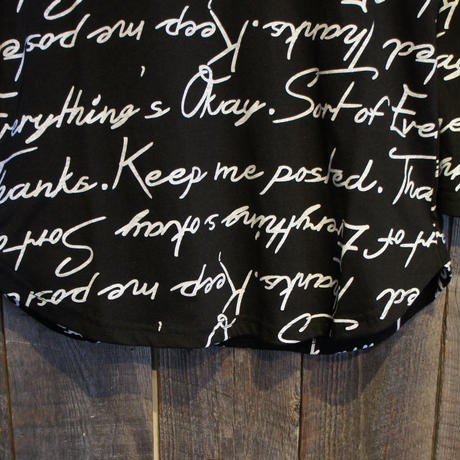 Keep me posted. Thanks. Keep
Everything's Okay. Sort of Eve
Thanks. Keep me posted. Tha
Sort of Everything's okay
Keep me posted. Thanks. Keep